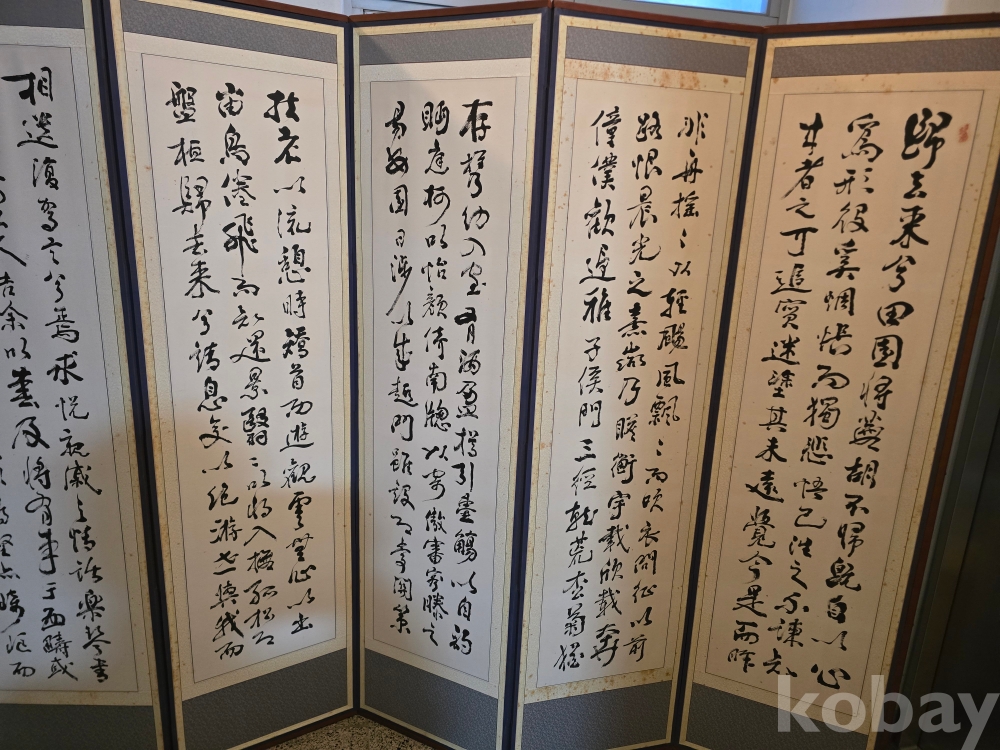 歸去來兮田園將蕪胡不歸旣自以心
爲形役奚惆悵而獨悲悟已往之不諫知
來者之可追寔迷塗其未遠覺今是而昨
非舟搖〻以輕颺風飄〻而吹衣問征以前
路恨晨光之熹微乃瞻衡宇載欣載奔
僮僕歡迎稚子候門三徑就荒松菊猶
存携幼入室有酒盈樽引壺觴以自酌
眄庭柯以怡顏倚南牕以寄傲審容膝之
易安園日涉以成趣門雖設而常關策
扶老以流憩時矯首而遊觀雲無心以出
岫鳥倦飛而知還景翳〻以將入撫孤松而
盤桓歸去來兮請息交以絶游世與我而
相遺復駕言兮焉求悅親戚之情話樂琴書
人告余以春及將有事于西疇或
kobay